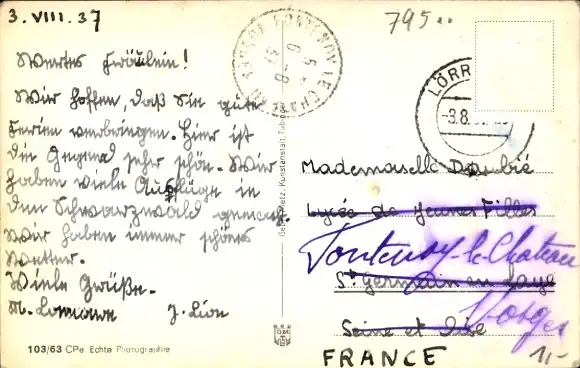 3.VIII.37
Wertes Fräulein!
Wir hoffen, daß Sie gute
Ferien verbringen. Hier ist
die Gegend sehr schön. Wir
haben viele Ausflüge in
den Schwarzwald gemacht.
Wir haben immer schönes
Wetter.
Viele Grüße.
M. J. Lion
103/63 CPe Echte Photographie
Metz, Kunstanstalt, Tübingen
FONTENOY LE CHATEAU
795
LÖRR
-3.8.
Mademoiselle Daubié
Lycée de Jeunes Filles
Fontenoy-le-Chateau
St Germain en Laye
Vosges
Seine et Oise
FRANCE
1,-